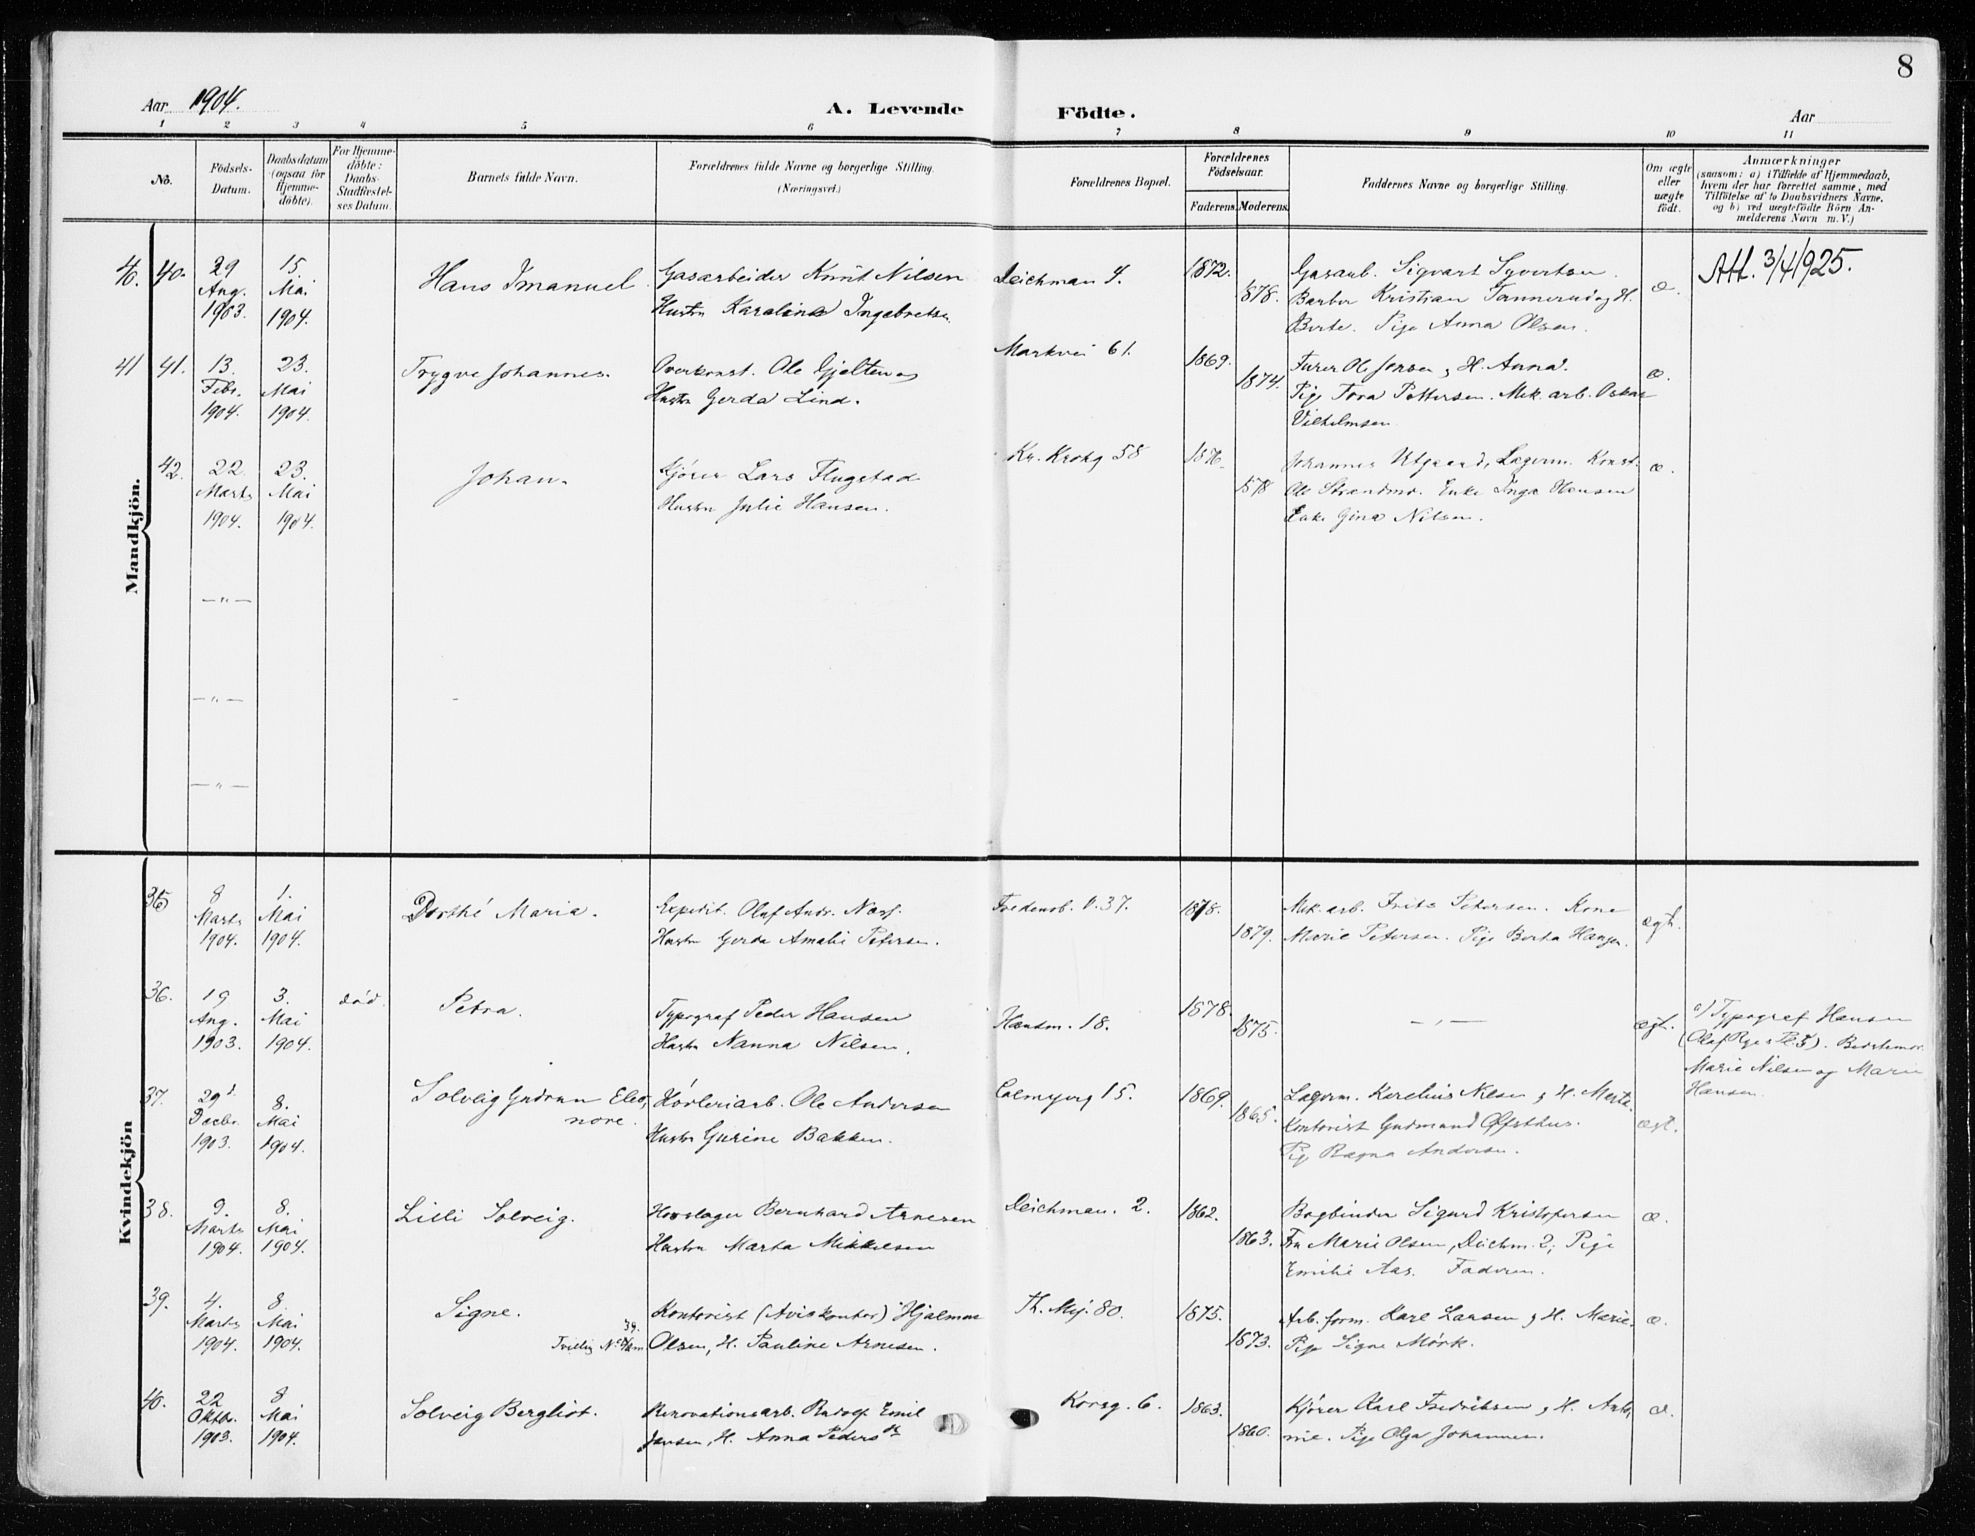 8
Aar 1904. A. Levende Födte. Aar
1 2 3 4 5 6 7 8 9 10 11
No.
Födsels-
Datum.
Daabsdatum
(ogsaa for
Hjemme-
döbte).
For Hjemme-
döbte:
Daabs-
Stadfæstel-
ses Datum.
Barnets fulde Navn.
Forældrenes fulde Navne og borgerlige Stilling.
(Næringsvei.)
Forældrenes Bopæl.
Forældrenes
Födselsaar.
Faderens. Moderens.
Faddernes Navne og borgerlige Stilling.
Om ægte
eller
uægte
født.
Anmærkninger
(saasom: a) i Tilfælde af Hjemmedaab,
hvem der har forrettet samme, med
Tilföielse af to Daabsvidners Navne.
og b) ved uægtefödte Börn An-
melderens Navn m. V.)
Mandkjön.
40. 40.
29
Aug.
1903.
15.
Mai
1904.
Hans Imanuel.
Gasarbeider Knut Nilsen
Hustru Karoline Ingebretsen
Deichman 4.
1872.
1878.
Gasarb. Sigvart Syvertsen.
Barber Kristian Tannerud og H.
Berte. Pige Anna Olsen.
æ.
Att. 3/4 1925.
41 41.
13.
Febr.
1904.
23.
Mai
1904.
Trygve Johannes.
Overkonst. Ole Gjelten og
Hustru Gerda Lind.
Markvei 61.
1869.
1874.
Furer Ol Jensen og H. Anna.
Pige Tora Pettersen. Mek. arb. Oskar
Vilhelmsen
æ.
42.
22
Marts
1904.
23.
Mai
1904.
Johan.
Kjører Lars Flugstad
Hustru Julie Hansen.
Kr. Krohg 58
1876.
1878
Johannes Utgaard, Lagerm. Konst.
Ole Strandmo. Enke Inga Hansen
Enke Gina Nilsen.
æ.
— " —
— " —
— " —
Kvindekjön
35
8
Marts
1904.
1.
Mai
1904.
Dorthé Maria.
Expedit. Olaf Andr. Næss.
Hustru Gerda Amalie Petersen.
Fredensb. V. 37.
1878.
1879.
Mek. arb. Frits Petersen. Kone
Marie Petersen. Pige Berta Hansen.
ægt.
36.
19
Aug.
1903.
3.
Mai
1904.
død.
Petra.
Typograf Peder Hansen
Hustru Nanna Nilsen.
Hausm. 18.
1878.
1875.
— " —
ægt.
a) Typograf Hansen
(Olaf Ryes Pl. 5). Bedstemor
Marie Nilsen og Marie
Hansen.
37.
29
Decbr.
1903.
8.
Mai
1904.
Solveig Gudrun Eleo-
nore.
Høvleriarb. Ole Andersen
Hustru Gurine Bakken.
Calmeyerg 15.
1869.
1865.
Lagerm. Karelius Nilsen og H. Marta.
Kontorist Gudmund Øfsthus.
Pige Ragna Andersen.
ægt.
38.
9.
Marts
1904.
8.
Mai
1904.
Lilli Solveig.
Hovslager Bernhard Arnesen
Hustru Marta Mikkelsen
Deichman. 2.
1862.
1863.
Bogbinder Sigurd Kristofersen
Fru Marie Olsen, Deichm. 2; Pige
Emilie Aas. Faderen.
æ.
39.
4.
Marts
1904.
8.
Mai
1904.
Signe.
Tvilling No 39.
Kontorist (Aviskontor) Hjalmar
Olsen, H. Pauline Arnesen.
Th. Mej. 80.
1875.
1873.
Arb. form. Karl Larsen og H. Marie.
Pige Signe Mørk.
æ.
40.
22
Oktbr.
1903.
8
Mai
1904.
Solveig Bergliot.
Renovationsarb. Rudolf Emil
Jansen, H. Anna Pedersdr.
Korsg. 6.
1863.
1860.
Kjører Karl Fredriksen og H. Anto-
nie. Pige Olga Johannesen.
æ.